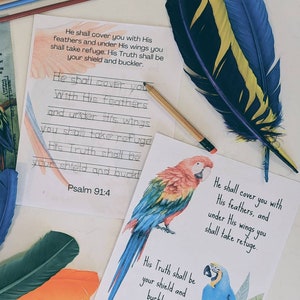 He shall cover you with His
feathers and under His wings you
shall take refuge. His Truth shall be
your shield and buckler.
He shall cover you
With His feathers
and under His wings
you shall take refuge
His Truth shall be
your shield and buckl
Psalm 91:4
He shall cover you with
His feathers, and
under His wings you
shall take refuge.
His Truth shall be
your shield and
buckler